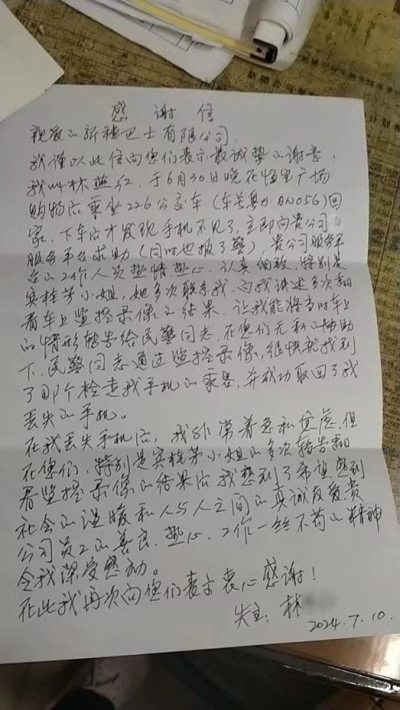 感谢信
亲爱的新穗巴士有限公司:
我谨以此信向您们表示最诚挚的谢意!
我叫林燕红,于6月30日晚在恒宝广场
购物后乘坐226公交车(车右角力AN056)回
家,下车后才发现手机不见了,立即向贵公司
服务平台求助(同时也报了警),贵公司服务平
台的工作人员热情热心、认真细致,特别是
吴桂芳小姐,她多次联系我,向我讲述多次翻
看车上监控录像的结果,让我能将当时车上
的情形转告给民警同志,在他们无私的协助
下,民警同志通过监控录像,很快就找到
了那个捡走我手机的乘客,并成功取回了我
丢失的手机。
在我丢失手机后,我非常着急和焦虑,但
在您们、特别是吴桂芳小姐的多次转告翻
看监控录像的结果后我感到了希望感到
社会的温暖和人与人之间的真诚友爱贵
公司员工的善良、热心、工作一丝不苟的精神
令我深受感动。
在此我再次向您们表示衷心感谢!
失主:林
2024.7.10.